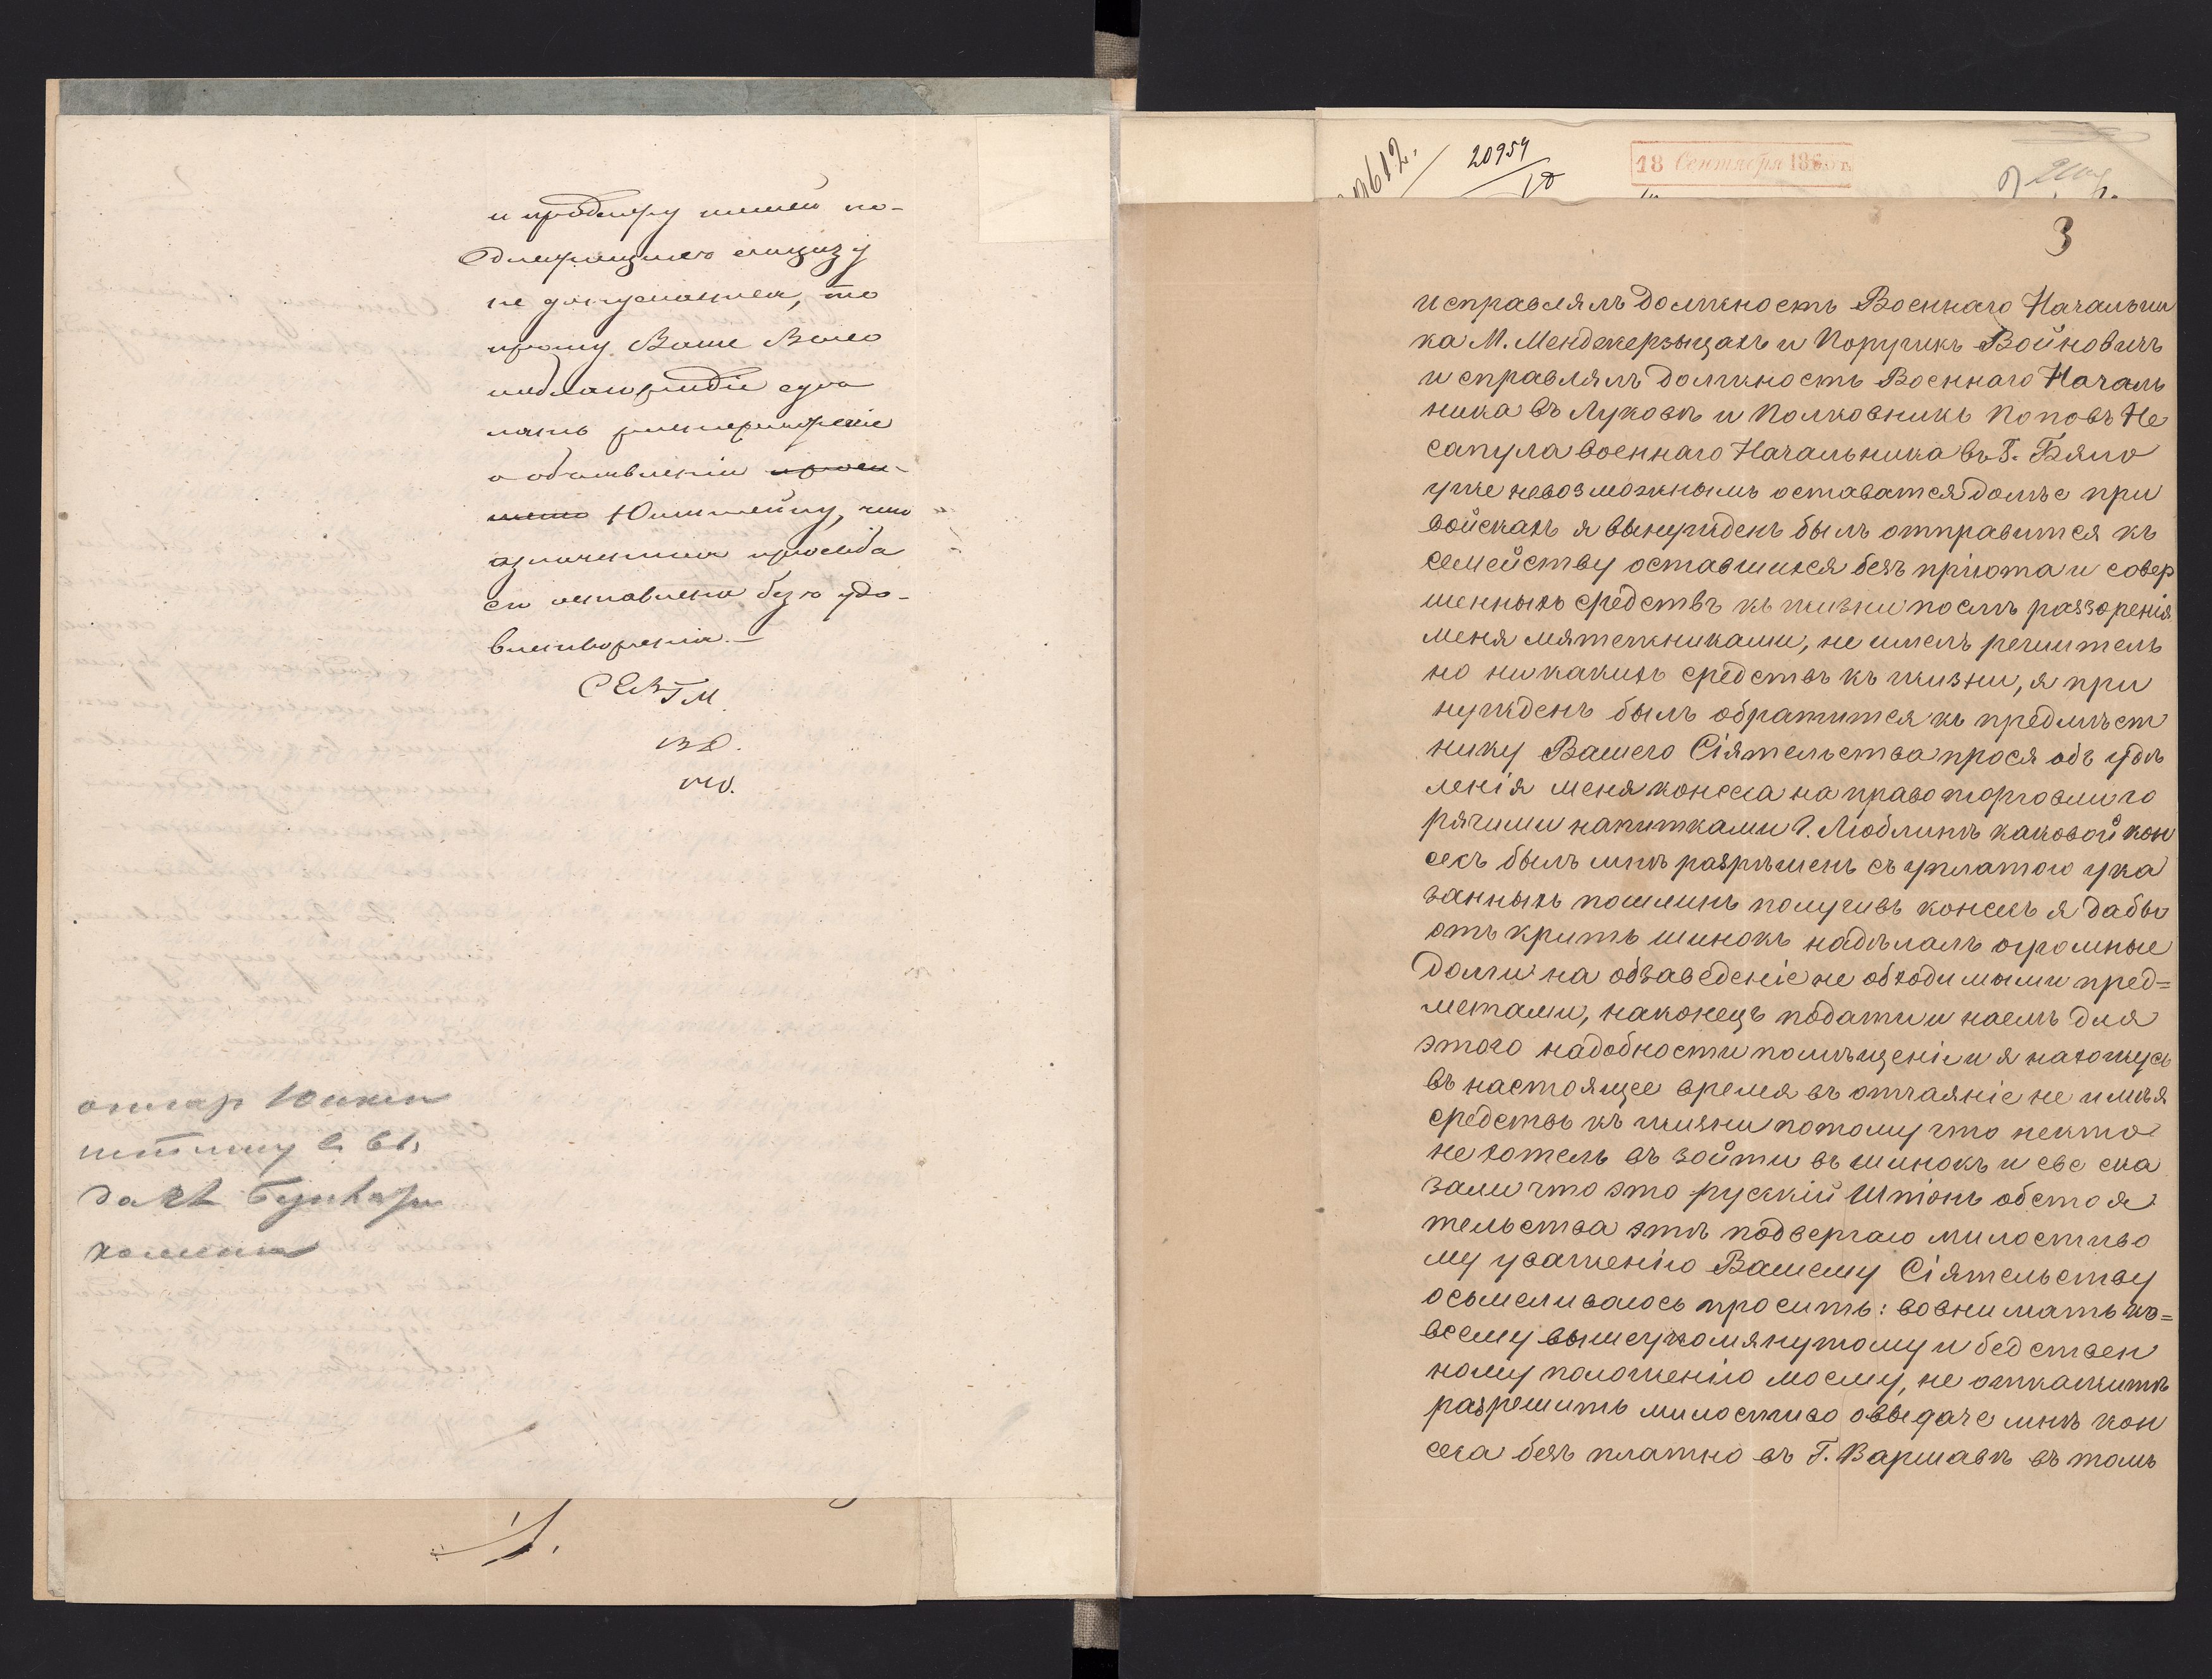 и продажу питей по-
длежащихъ акцизу
не допускается, то
прошу Ваше Высо
коблагородіе сдѣ
лать распоряженіе
о объявленіи
Юнштейну, что
означенная просьба
его оставлена безъ удо-
влетворенія.—
3
20959
18 Сентября 186
исправлялъ должность Военнаго Начальни
ка М. Менджерзыцахъ и Поручикъ Войновичъ
исправлялъ должность Военнаго Началь
ника въ Луковѣ и Полковникъ Поповъ Не
сапула военнаго Начальника въ Г. Бяло
уже невозможнымъ оставатся долѣе при
войскахъ я вынужденъ былъ отправится къ
семейству оставшихся безъ пріюта и совер
шенныхъ средствъ къ жизни послѣ раззоренія
меня мятежниками, не имелъ решитель
но никакихъ средствъ къ жизни, я при
нужденъ былъ обратится къ предмѣст
нику Вашего Сіятельства прося объ удѣ
ленія меня консеса на право торговли го
рячими напитками Г. Люблинѣ каковой кон
сесъ былъ мнѣ разрѣшенъ съ уплатою ука
занныхъ пошлинъ получивъ консесъ я дабы
отъ крить шинокъ надѣлалъ огромные
долги на обзаведеніе не обходимыми пред=
метами, наконецъ подати и наемъ для
этого надобности помѣщеніи и я нахожусь
въ настоящее время въ отчаяніе не имѣя
средствъ къ жизни потому что некто
не хотелъ въ зойти въ шинокъ и све ска
зали что это рускій Шпіонъ обстоя
тельства этѣ подвергаю милостиво
му уваженію Вашему Сіятельству
осымеливаюсь просить: вовнимать ко=
всему вышеупомянутому и бедствен
ному положенію моему, не откажитѣ
разрешить милостиво овыдаче мнѣ кон
сеса безъ платно въ Г. Варшавѣ въ томъ